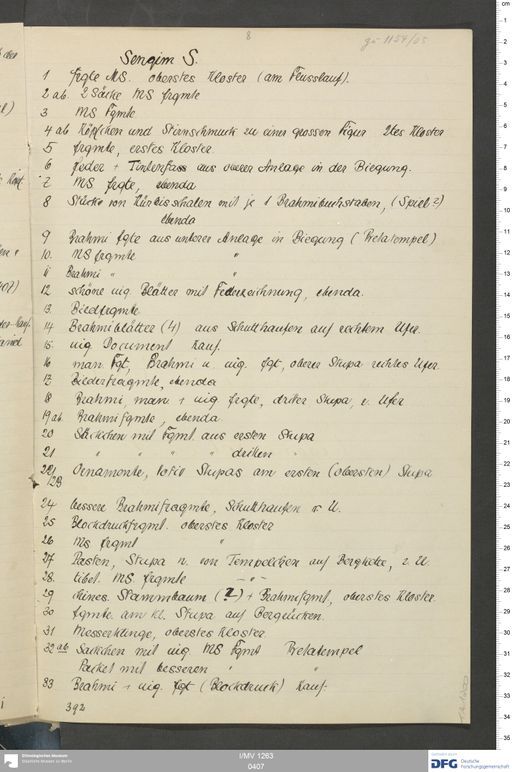 8
zu 1154/05
Sengim S.
1 frgte MS. oberstes Kloster (am Flusslauf).
2 ab. 2 Säcke MS frgmte
3 MS Fgmte
4 ab Köpfchen und Stirnschmuck zu einer grossen Figur 2tes Kloster
5 frgmte, erstes Kloster.
6 feder + Tintenfass aus oberer Anlage in der Biegung.
7 MS frgte, ebenda
8 Stücke von Kürbisschalen mit je 1 Brahmibuchstaben, (Spiel?)
ebenda
9 Brahmi fgte aus unterer Anlage in Biegung (Pretatempel)
10. MS frgmte "
11 Brahmi " "
12 schöne uig. Blätter mit Federzeichnung, ebenda.
13. Bildfrgmte
14 Brahmiblätter (4) aus Schutthaufen auf rechtem Ufer.
15. uig. Document Kauf.
16 man. Fgt, Brahmi u. uig. fgt, oberer Stupa rechtes Ufer
17 Bilderfragmte, ebenda
18 Brahmi, man. + uig frgte, dritter Stupa, r. Ufer
19 ab. Brahmifgmte, ebenda.
20 Säckchen mit Fgmt. aus ersten Stupa
21 " " " " dritten "
22/23 Ornamente, votiv Stupas am ersten (obersten) Stupa
24 bessere Brahmifragmte, Schutthaufen r. U.
25 Blockdruckfrgmt. oberstes Kloster
26 MS frgmt "
27 Pasten, Stupa u. von Tempelchen auf Bergkette, r. U.
28. tibet. MS frgmte — " —
29 chines. Stammbaum (?) + Brahmifgmt, oberstes Kloster.
30 fgmte. am kl. Stupa auf Bergrücken.
31 Messerklinge, oberstes Kloster
32 ab Säckchen mit uig. MS Fgmt Pretatempel
Packet mit besseren " "
33 Brahmi + uig. fgt (Blockdruck) Kauf.
392
Ethnologisches Museum
Staatliche Museen zu Berlin
I/MV 1263
0407
DFG Deutsche
Forschungsgemeinschaft